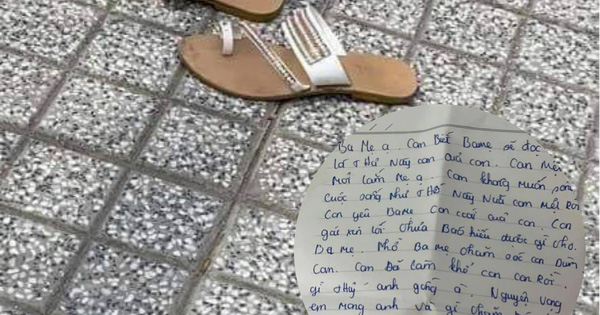 Ba Mẹ ạ. Con Biết BaMẹ sẽ đọc
lá tHư Này của con. Con Mệt
Mỏi lắm Mẹ ạ. Con không muốn
Cuộc sống Như tHế Này Nữa con Mệt Rồi
Con yêu BaMẹ Con cái của con. Con
gái xin lỗi chưa Báo hiếu được gì cho.
Ba Mẹ. Nhờ Ba Mẹ chăm sóc con Dùm
Con. Con Đã làm khổ con con Rồi.
gì tHuỷ anh à. Nguyện Vọng
em mong anh và gì chăm